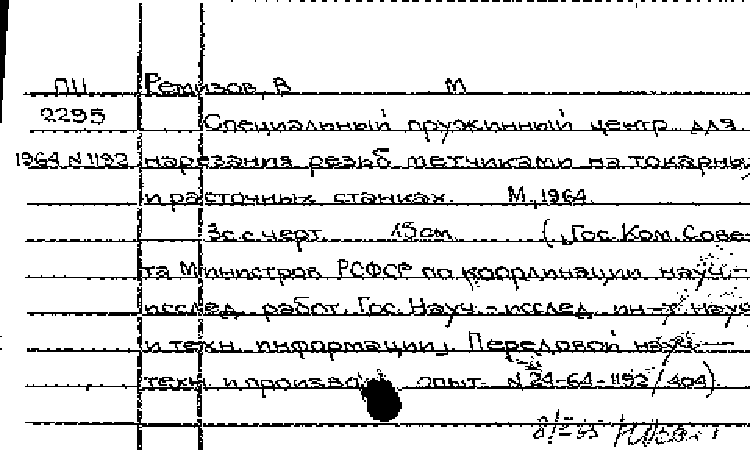 ПИ Ремизов, В М
2295 Специальный пружинный центр для
1964 N 1192 нарезания резьб метчиками на токарных
и расточных станках. М., 1964.
3с. с черт. 15 см. (Гос. Ком. Сове-
та Министров РСФСР по координации науч.-
исслед. работ. Гос. Науч.-исслед. ин-т науч.
и техн. информации). Передовой науч.-
техн. и производ. опыт. N 24-64-1192/404).